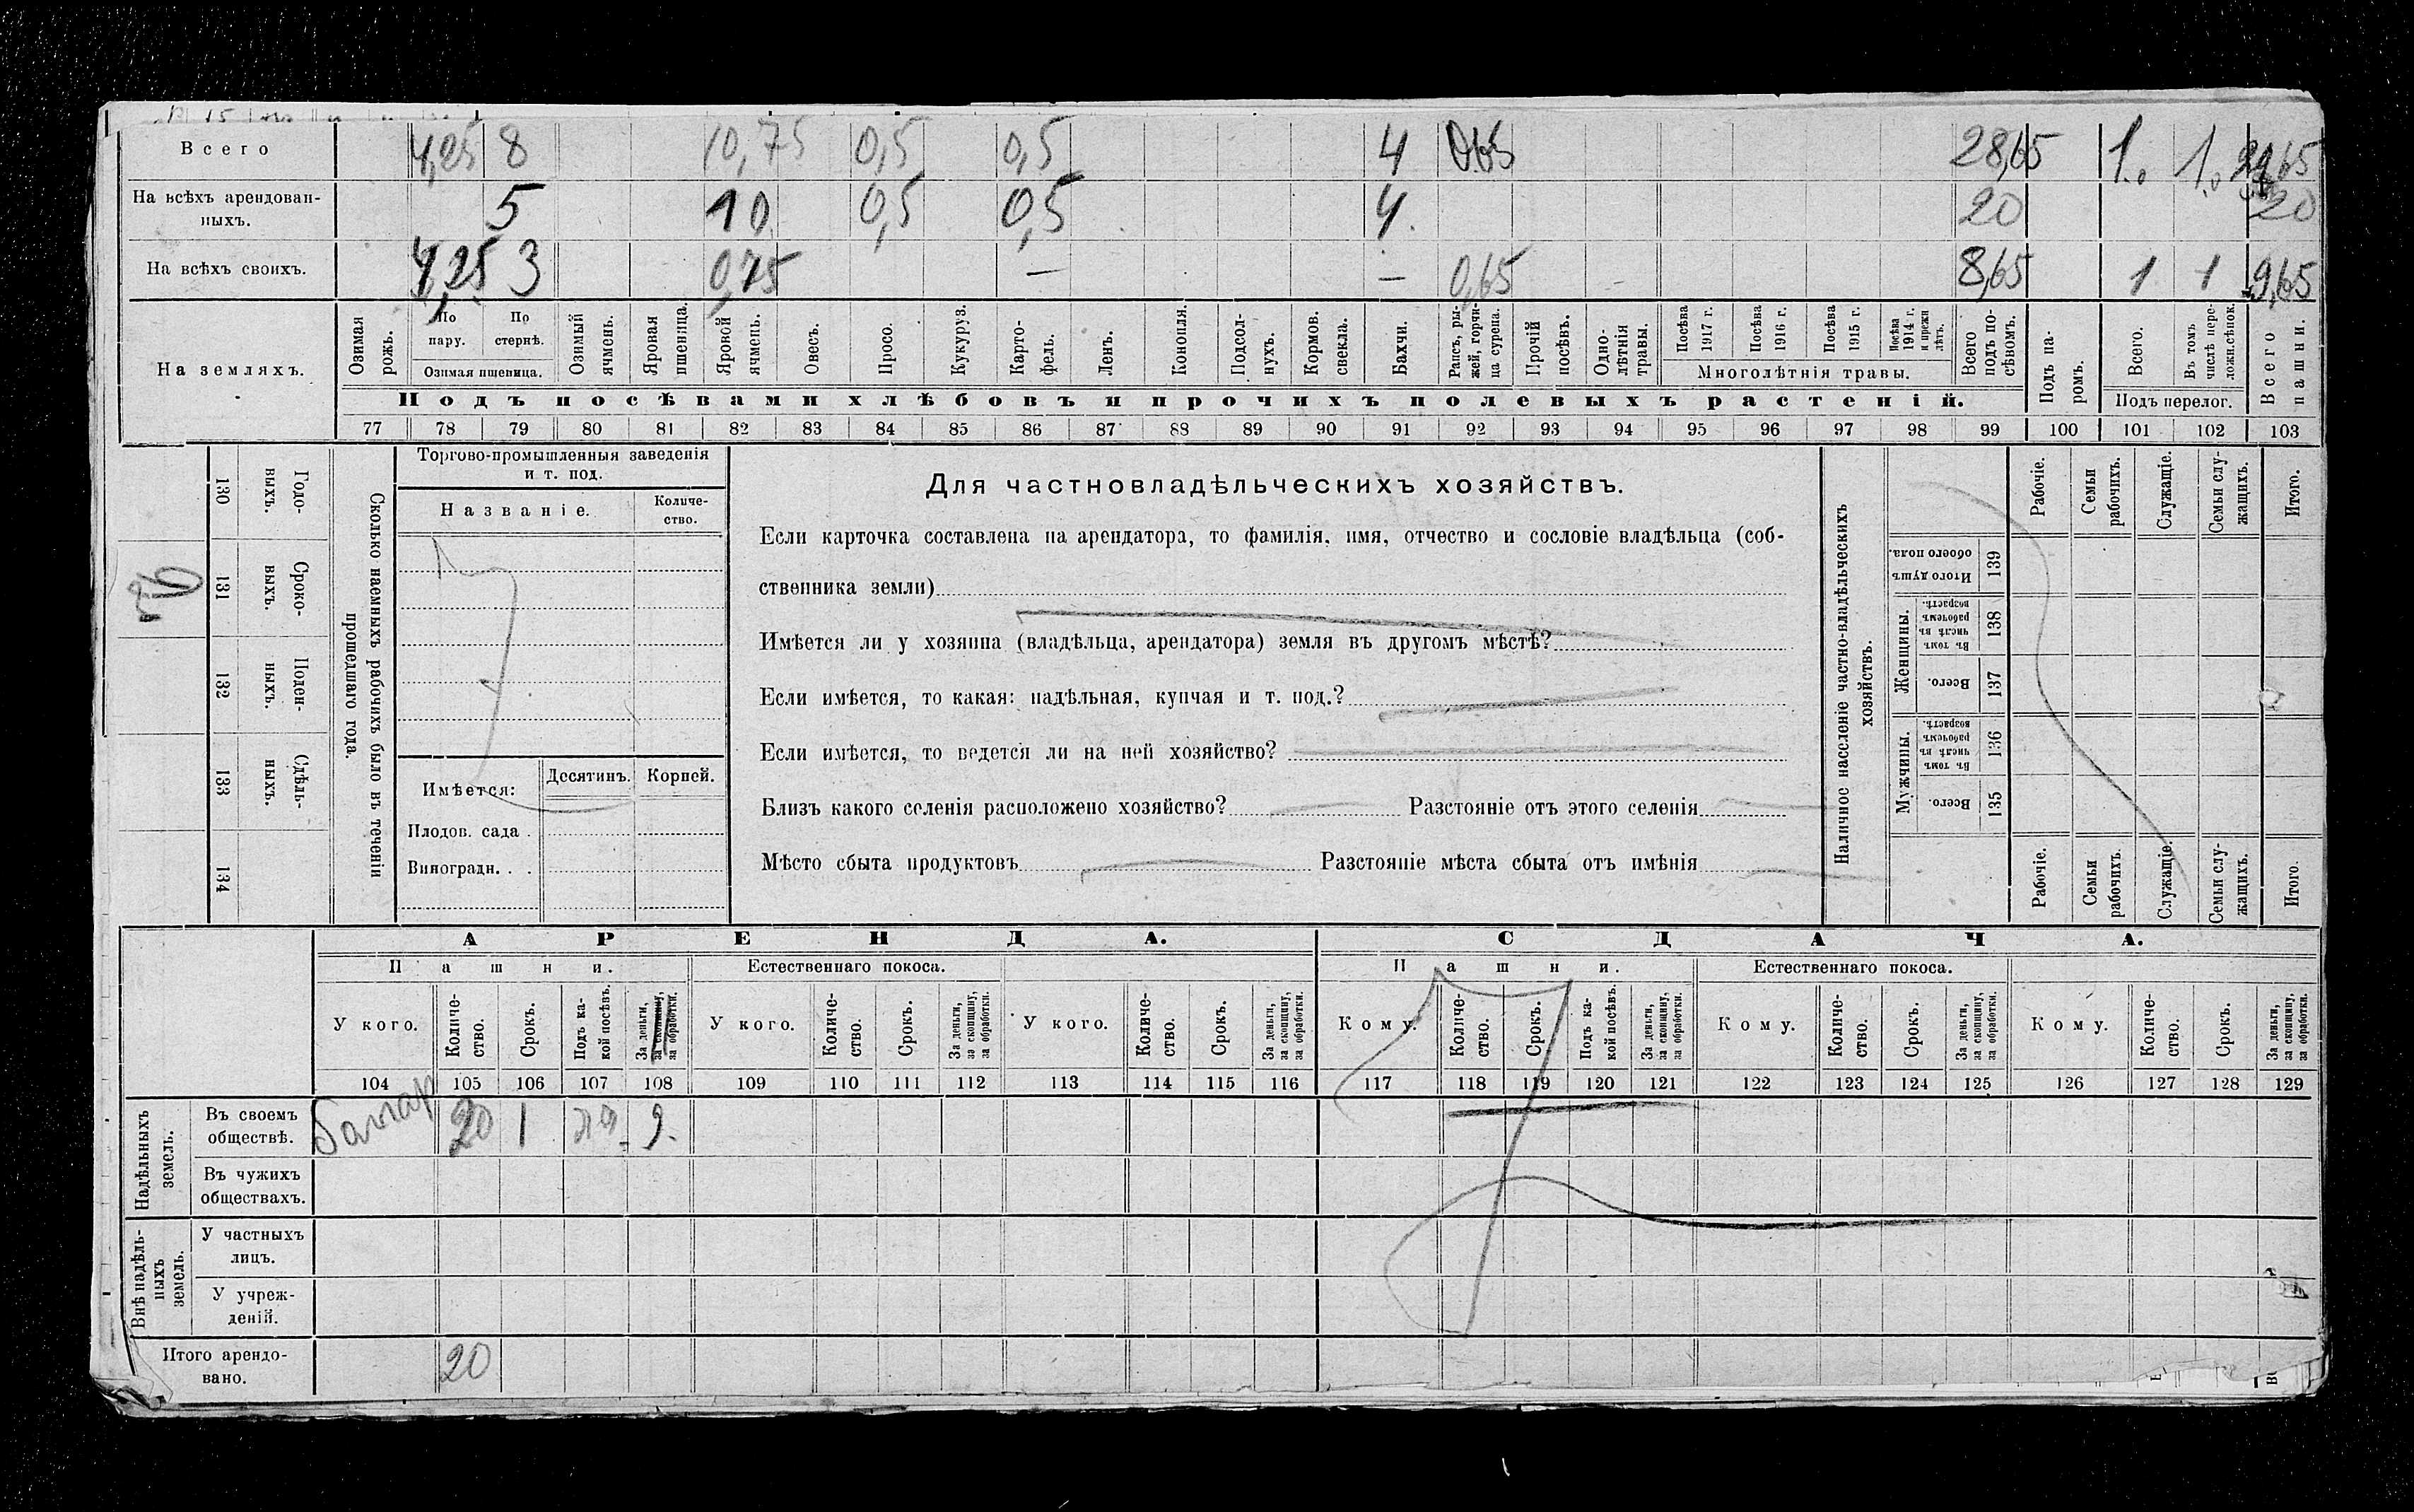 Всего 4,25 8 10,75 0,5 0,5 4 0,65 28,65 1.0 1.0 29,65
На всѣхъ арендован-
ныхъ. 5 10 0,5 0,5 4. 20 20
На всѣхъ своихъ. 4,25 3 0,75 — — 0,65 8,65 1 1 9,65
На земляхъ.
Озимая рожь.
По пару.
По стернѣ.
Озимая пшеница.
Озимый ячмень.
Яровая пшеница.
Яровой ячмень.
Овесъ.
Просо.
Кукуруз.
Карто-
фель.
Ленъ.
Конопля.
Подсол-
нухъ.
Кормов. свекла.
Бахчи.
Рапсъ, ры-
жей, горчи-
ца сурепа.
Прочій посѣвъ.
Одно-
лѣтнія травы.
Посѣва 1917 г.
Посѣва 1916 г.
Посѣва 1915 г.
Посѣва 1914 г. и прежн лѣтъ.
Многолѣтнія травы.
Всего подъ по-
сѣвомъ.
Подъ па-
ромъ.
Всего.
Въ томъ числѣ пере-
ложн.сѣнок.
Подъ перелог.
Всего пашни.
Подъ посѣвами хлѣбовъ и прочихъ полевыхъ растеній.
77 78 79 80 81 82 83 84 85 86 87 88 89 90 91 92 93 94 95 96 97 98 99 100 101 102 103
130 Годо-
выхъ.
131 Сроко-
выхъ.
132 Поден-
ныхъ.
133 Сдѣль-
ныхъ.
134
Сколько наемныхъ рабочихъ было въ теченіи
прошедшаго года.
Торгово-промышленныя заведенія
и т. под.
Названіе.
Количе-
ство.
Имѣется:
Десятинъ. Корней.
Плодов. сада .
Виноградн. . .
Для частновладѣльческихъ хозяйствъ.
Если карточка составлена на арендатора, то фамилія, имя, отчество и сословіе владѣльца (соб-
ственника земли)
Имѣется ли у хозяина (владѣльца, арендатора) земля въ другомъ мѣстѣ?
Если имѣется, то какая: надѣльная, купчая и т. под.?
Если имѣется, то ведется ли на ней хозяйство?
Близъ какого селенія расположено хозяйство? Разстояніе отъ этого селенія
Мѣсто сбыта продуктовъ Разстояніе мѣста сбыта отъ имѣнія
Наличное населеніе частно-владѣльческихъ
хозяйствъ.
Рабочіе.
Семьи рабочихъ.
Служащіе.
Семьи слу-
жащихъ.
Итого.
Итого душъ обоего пола. 139
Женщины.
Въ томъ числѣ въ рабочемъ возрастѣ. 138
Всего. 137
Мужчины.
Въ томъ числѣ въ рабочемъ возрастѣ. 136
Всего. 135
Рабочіе.
Семьи рабочихъ.
Служащіе.
Семьи слу-
жащихъ.
Итого
АРЕНДА. СДАЧА.
Пашни. Естественнаго покоса. Пашни. Естественнаго покоса.
У кого.
Количе-
ство.
Срокъ.
Подъ ка-
кой посѣвъ.
За деньги, за скопщину, за обработки.
У кого.
Количе-
ство.
Срокъ.
За деньги, за скопщину, за обработки.
У кого.
Количе-
ство.
Срокъ.
За деньги, за скопщину, за обработки.
Кому.
Количе-
ство.
Срокъ.
Подъ ка-
кой посѣвъ.
За деньги, за скопщину, за обработки.
Кому.
Количе-
ство.
Срокъ.
За деньги, за скопщину, за обработки.
Кому.
Количе-
ство.
Срокъ.
За деньги, за скопщину, за обработки.
104 105 106 107 108 109 110 111 112 113 114 115 116 117 118 119 120 121 122 123 124 125 126 127 128 129
Надѣльныхъ земель.
Въ своемъ
обществѣ. 20 1
Въ чужихъ
обществахъ.
Внѣ надѣль-
ныхъ земель.
У частныхъ
лицъ.
У учреж-
деній.
Итого арендо-
вано. 20